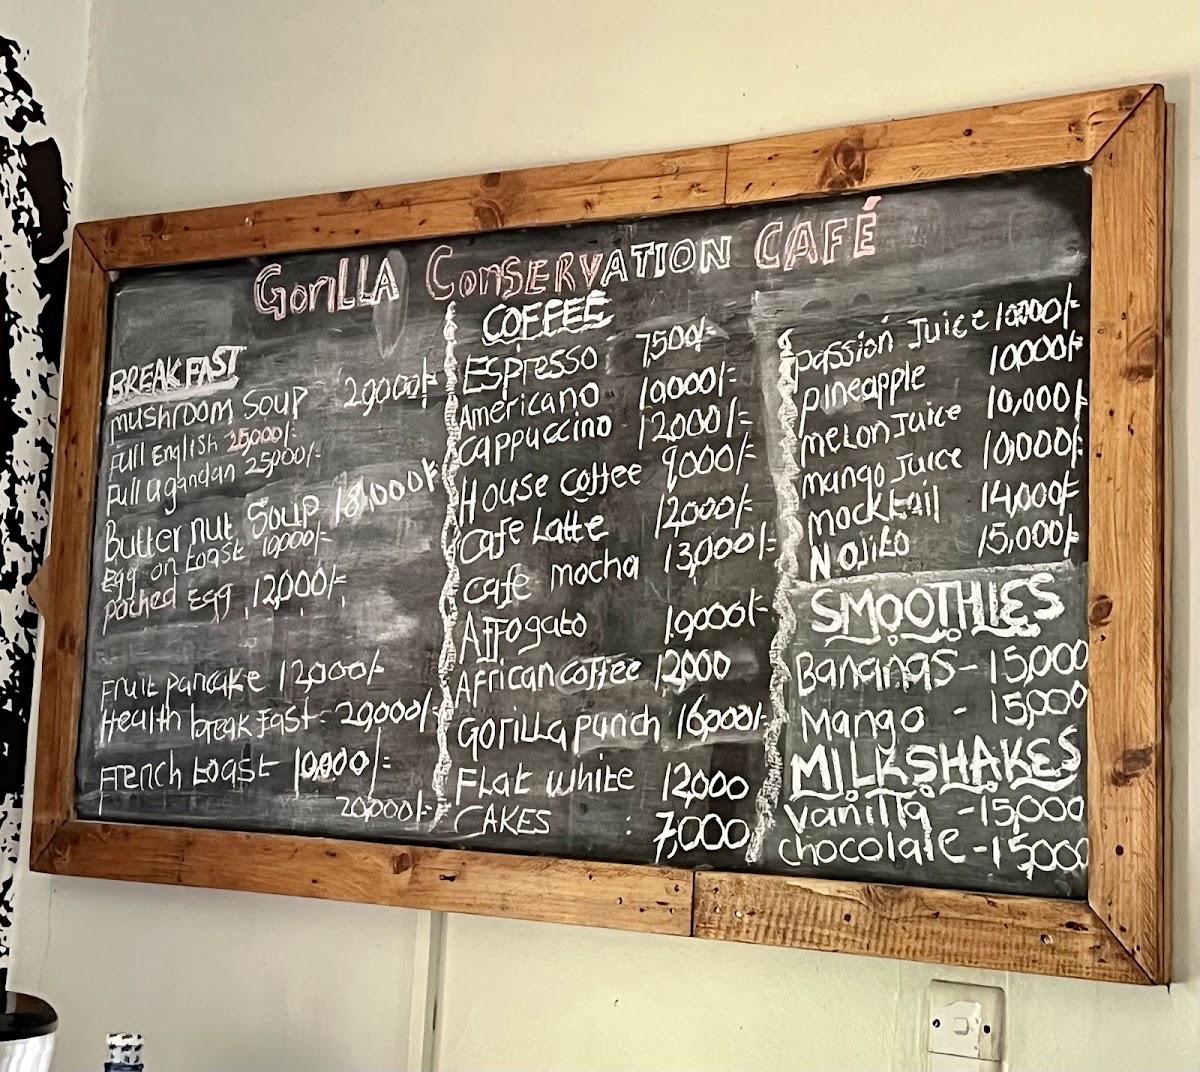 GorILLA ConSERVATION CAFÉ
BREAKFAST
mushroom soup 20,000/=
Full English 25,000/=
Full ugandan 25,000/=
Butter nut Soup 18,000/=
Egg on toast 10,000/=
poched Egg 12,000/=
Fruit pancake 12,000/=
Health breakfast - 20,000/=
French toast 10,000/=
20,000/=
COFFEE
Espresso 7,500/=
Americano 10,000/=
Cappuccino 12,000/=
House coffee 9,000/=
Cafe Latte 12,000/=
Cafe mocha 13,000/=
Affogato 19,000/=
African coffee 12,000
Gorilla punch 16,000/=
Flat white 12,000
CAKES : 7,000
passion Juice 10,000/=
pineapple 10,000/=
melon Juice 10,000/=
mango Juice 10,000/=
mocktail 14,000/=
Nojito 15,000/=
SMOOTHIES
Bananas - 15,000
Mango - 15,000
MILKSHAKES
vanilla - 15,000
chocolate - 15,000